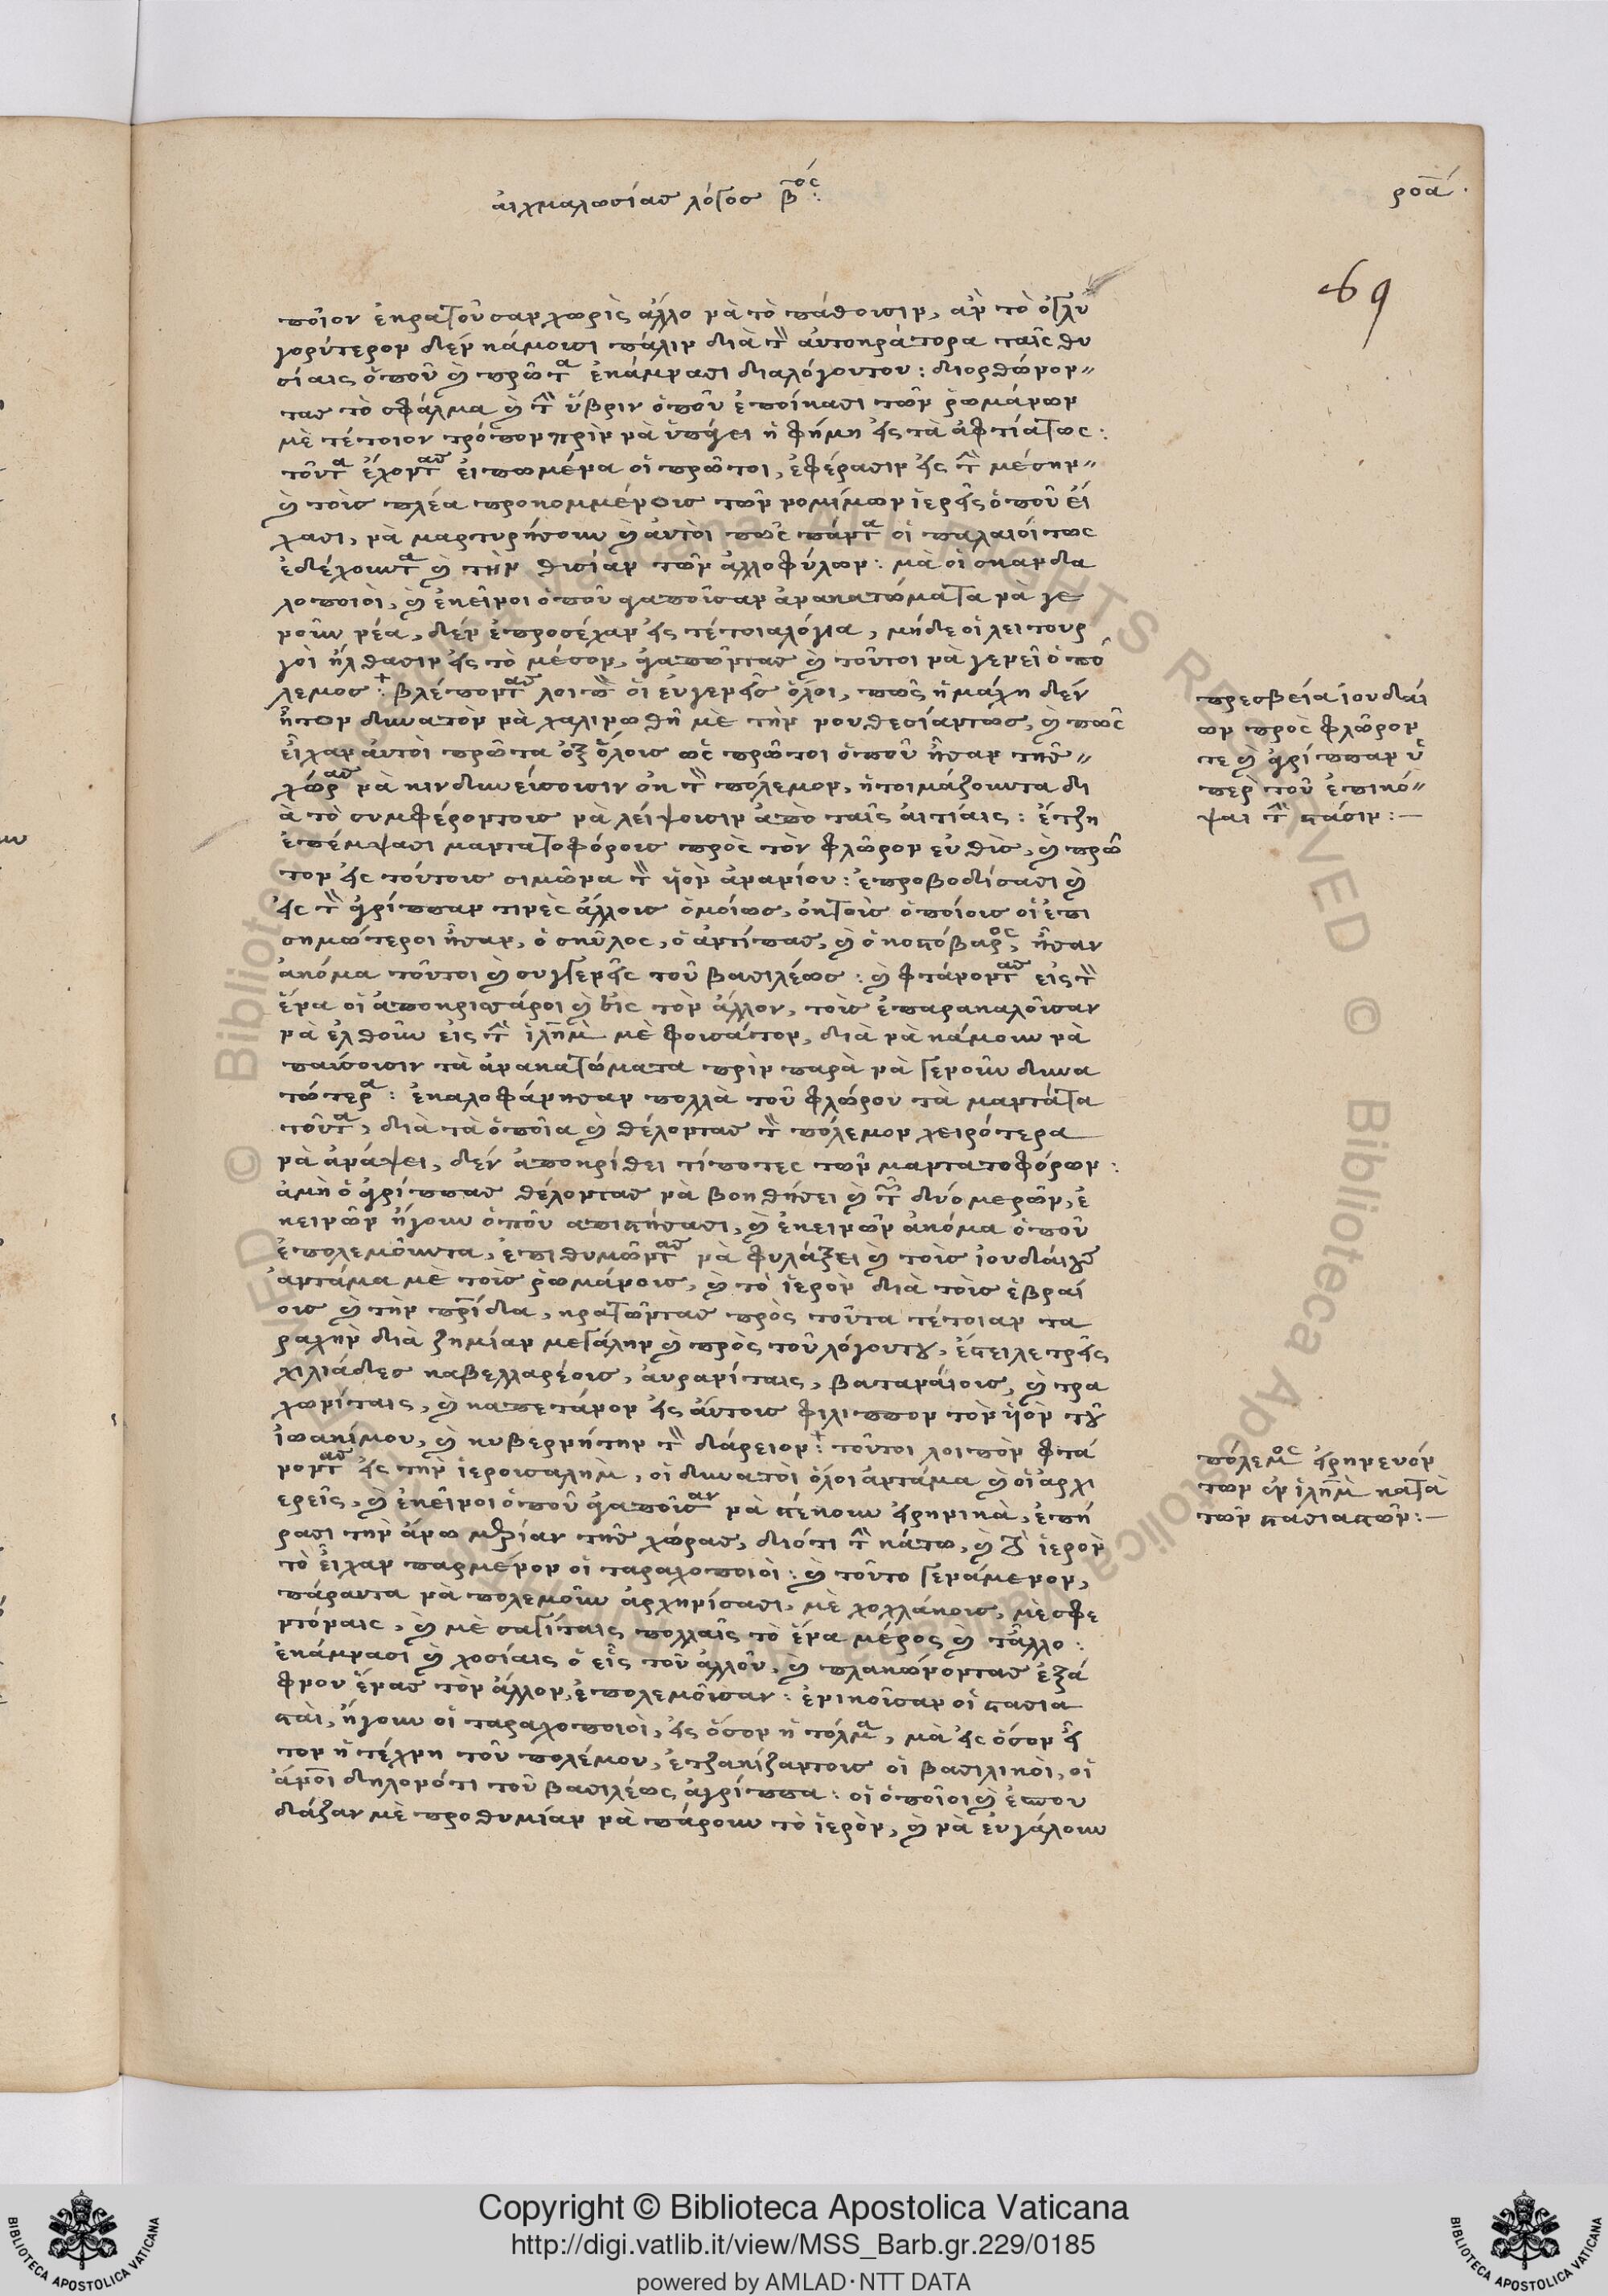 αἰχμαλωσίας λόγος β^ος:
ροα΄.
69
ποῖον ἐκρατοῦσαν χωρὶς ἄλλο νὰ τὸ πάθουσιν, ἂν τὸ ὀγλυ
γορύτερον δὲν κάμουσι πάλιν διὰ τὸν αὐτοκράτορα ταῖς θυ
σίαις ὁποῦ καὶ πρῶτα ἐκάμνασι διαλόγουτου: διορθώνον〃
τας τὸ σφάλμα καὶ τὴν ὕβριν ὁποῦ ἐποίκασι τῶν ῥωμάνων
μὲ τέτοιον τρόπον πρὶν νὰ ὑπάγει ἡ φήμη εἰς τὰ ἀφτιάτως:
τοῦτα ἔχοντας εἰπωμένα οἱ πρῶτοι, ἐφέρασιν εἰς τὴν μέσην〃
καὶ τοὺς πλέα προκομμένους τῶν νομίμων ἱερεῖς ὁποῦ εἴ
χασι, νὰ μαρτυρήσουν καὶ αὐτοὶ πῶς πάντα οἱ παλαιοί τως
ἐδέχουντα καὶ τὴν θυσίαν τῶν ἀλλοφύλων: μὰ οἱ σκανδα
λοποιοὶ, καὶ ἐκεῖνοι ὁποῦ ἀγαποῦσαν ἀνακατώματα νὰ γε
νοῦν νέα, δὲν ἐπροσέχαν εἰς τέτοιαλόγια, μήδε οἱ λειτουρ
γοὶ ἤλθασιν εἰς τὸ μέσον, ἀγαπῶντας καὶ τοῦτοι νὰ γενεῖ ὁ πό
λεμος: βλέποντας λοιπὸν οἱ εὐγενεῖς ὅλοι, πῶς ἡ μάχη δὲν
ἦτον δυνατὸν νὰ χαλινωθῆ μὲ τὴν νουθεσίαντως, καὶ πῶς
εἶχαν αὐτοὶ πρῶτα ἐξ ὅλους ὡς πρῶτοι ὁποῦ ἦσαν τῆς〃
χώρας νὰ κινδυνεύσουσιν ἐκ τὸν πόλεμον, ἡτοιμάζουντα δι
ὰ τὸ συμφέροντους νὰ λείψουσιν ἀπὸ ταῖς αἰτίαις: ἔτζη
ἐπέμψασι μαντατοφόρους πρὸς τὸν φλῶρον εὐθὺς, καὶ πρῶ
τον εἰς τούτους σιμῶνα τὸν ὑιὸν ἀνανίου: ἐπροβοδίσασι καὶ
εἰς τὸν ἀγρίππαν τινὲς ἄλλους ὁμοίως, ἐκ τοὺς ὁποίους οἱ ἐπι
σημώτεροι ἦσαν, ὁ σηῦλος, ὁ ἀντίπας, καὶ ὁ κοστόβαρος, ἦσαν
ἀκόμα τοῦτοι καὶ συγγενεῖς τοῦ βασιλέως: καὶ φτάνοντας εἰς τὸν
ἕνα οἱ ἀποκρισάροι καὶ εἰς τὸν ἄλλον, τοὺς ἐπαρακαλοῦσαν
νὰ ἐλθοῦν εἰς τὴν ἱλημ μὲ φουσάτον, διὰ νὰ κάμουν νὰ
παύσουσιν τὰ ἀνακατώματα πρὶν παρὰ νὰ γενοῦν δυνα
τώτερα: ἐκαλοφάνησαν πολλὰ τοῦ φλώρου τὰ μαντάτα
τοῦτα, διὰ τὰ ὁποῖα καὶ θέλοντας τὸν πόλεμον χειρότερα
νὰ ἀνάψει, δὲν ἀποκρίθει τίποτες τῶν μαντατοφόρων:
ἀμὴ ὁ ἀγρίππας θέλοντας νὰ βοηθήσει καὶ τῶν δύο μερῶν, ἐ
κεινῶν ἤγουν ὁποῦ αποστήσασι, καὶ ἐκεινῶν ἀκόμα ὁποῦ
ἐπολεμοῦντα, ἐπιθυμῶντας νὰ φυλάξει καὶ τοὺς ἰουδαίους
ἀντάμα μὲ τοὺς ῥωμάνους, καὶ τὸ ἱερὸν διὰ τοὺς ἑβραί
ους καὶ τὴν πρίδα, κρατῶντας πρὸς τοῦτα τέτοιαν τα
ραχὴν διὰ ζημίαν μεγάλην καὶ πρὸς τοῦ λόγουτου, ἔστειλε τρεῖς
χιλιάδες καβελλαρέους, ἀυρανίταις, βαταναίους, καὶ τρα
χωνίταις, καὶ καπετάνον εἰς αὐτους φίλιππον τὸν ὑιὸν τοῦ
ἰωακίμου, καὶ κυβερνήτην τὸν δάρειον: τοῦτοι λοιπὸν φτά
νοντας εἰς τὴν ἱερουσαλὴμ, οἱ δυνατοὶ ὅλοι ἀντάμα καὶ οἱ ἀρχι
ερεῖς, καὶ ἐκεῖνοι ὁποῦ ἀγαποῦσαν νὰ στέκουν εἰρηνικὰ, ἐπή
ρασι τὴν ἄνω μερίαν τῆς χώρας, διότι τὴν κάτω, καὶ τὸ ἱερὸν
τὸ εἶχαν παρμένον οἱ ταραχοποιοὶ: καὶ τοῦτο γενάμενον,
πάραντα νὰ πολεμοῦν ἀρχηνίσασι, μὲ χοχλάκους, μὲ σφε
ντόναις, καὶ μὲ σαγίταις πολλαῖς τὸ ἕνα μέρος καὶ τἄλλο:
ἐκάμνασι καὶ χοσίαις ὁ εἷς τοῦ ἀλλοῦ, καὶ πλακώνοντας ἐξά
φνου ἕνας τὸν ἄλλον, ἐπολεμοῦσαν: ἐνικοῦσαν οἱ στασια
σταὶ, ἤγουν οἱ ταραχοποιοὶ, εἰς ὅσον ἡ τόλμα, μὰ εἰς ὅσον εἶ
τον ἡ τέχνη τοῦ πολέμου, ἐτζακίζαντους οἱ βασιλικοὶ, οἱ
ἄνοι δηλονότι τοῦ βασιλέως ἀγρίππα: οἱ ὁποῖοι καὶ ἐσπου
δάζαν μὲ προθυμίαν νὰ πάρουν τὸ ἱερὸν, καὶ νὰ εὐγάλουν
πρεσβεία ἰουδαί
ων πρὸς φλῶρον
τε καὶ ἀγρίππαν ὑ
περ τοῦ ἐπικό〃
ψαι τὴν στάσιν:—
πόλεμος εἰρηνευόν
των ἐν ἱλημ κατὰ
τῶν στασιαστῶν:—
Copyright © Biblioteca Apostolica Vaticana
http://digi.vatlib.it/view/MSS_Barb.gr.229/0185
powered by AMLAD·NTT DATA